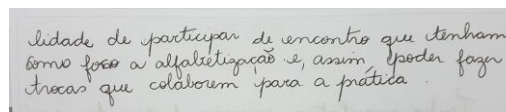 lidade de participar de encontro que tenham
como foco a alfabetização e, assim, poder fazer
trocas que colaborem para a prática.